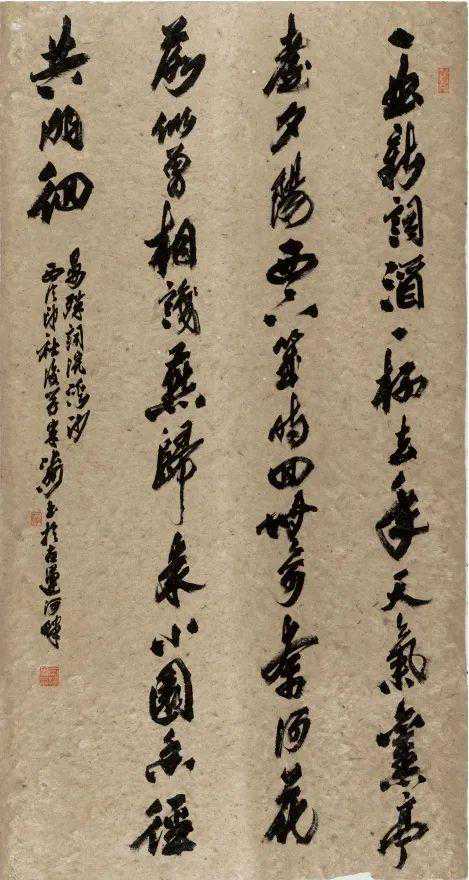 一曲新詞酒一杯去年天氣舊亭
臺夕陽西下幾時回無可奈何花
落似曾相識燕歸來小園香徑
獨徘徊
晏殊詞浣溪沙
西泠印社後學書於古運河畔